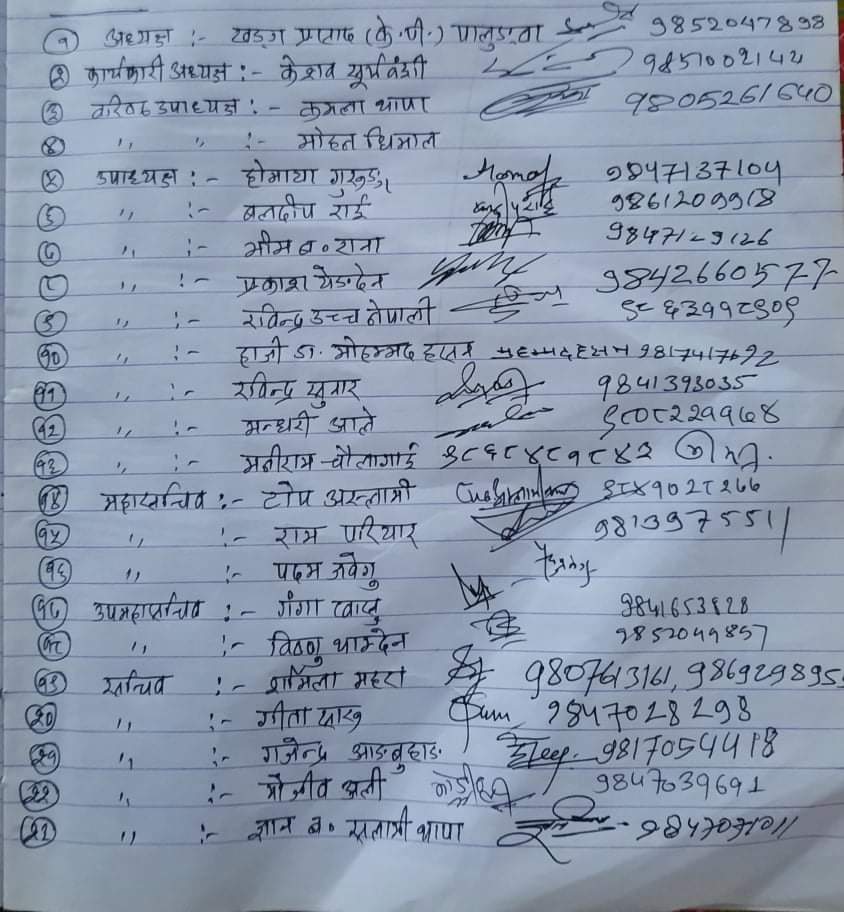 १ अध्यक्ष :- खड्ग प्रसाद (के.पी.) पालुङवा 9852047898
२ कार्यकारी अध्यक्ष :- केशव सूर्यवंशी 9851002142
३ वरिष्ठ उपाध्यक्ष :- कमला थापा 9805261640
४ ,, ,, :- मोहन धिमाल
५ उपाध्यक्ष :- होमाया गुरुङ 9847137104
६ ,, :- बलदीप राई 9861209918
७ ,, :- भीम ब. राना
८ ,, :- प्रकाश येङदेन 9842660577
९ ,, :- रविन्द्र उच्च नेपाली
१० ,, :- हाजी डा. मोहम्मद हसन 9817417692
११ ,, :- रविन्द्र सुनार 9841393035
१२ ,, :- मन्धरी आले ९८०८२२११६४
१३ ,, :- मनीराम चौलागाई ९८६८४८१८४२
१४ महासचिव :- टोप अस्लामी ९८४७०२८२६६
१५ ,, :- राम परियार 981397551
१६ ,, :- पदम जवेगु
१७ उपमहासचिव :- गंगा खालु 9841653828
१८ ,, :- विष्णु थाम्देन 9852049857
१९ सचिव :- शर्मिला महरा 9807613161, 986929895
२० ,, :- गीता सारु 9847028298
२१ ,, :- गजेन्द्र आङबुहाङ 9817054418
२२ ,, :- मोजीव अली 9847039691
,, :- ज्ञान ब. सलामी थापा 9847071011